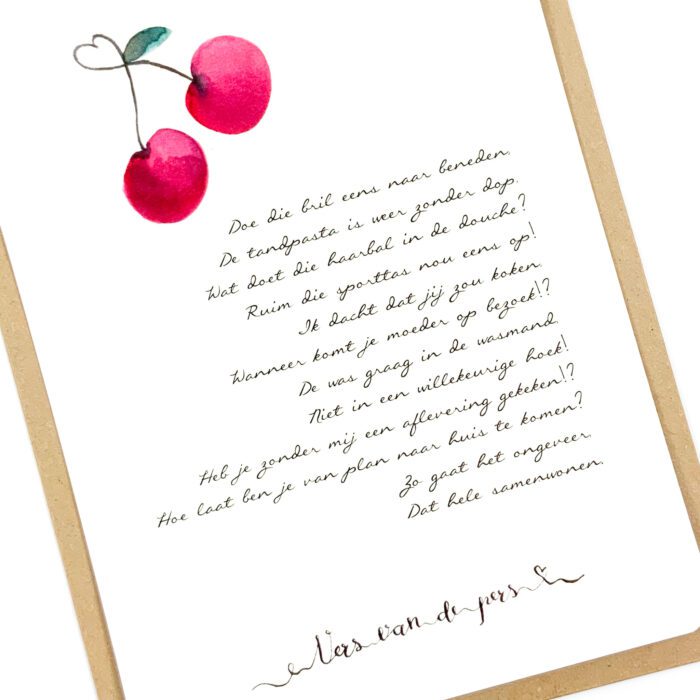 Doe die bril eens naar beneden.
De tandpasta is weer zonder dop.
Wat doet die haarbal in de douche?
Ruim die sporttas nou eens op!
Ik dacht dat jij zou koken.
Wanneer komt je moeder op bezoek!?
De was graag in de wasmand.
Niet in een willekeurige hoek!
Heb je zonder mij een aflevering gekeken!?
Hoe laat ben je van plan naar huis te komen?
Zo gaat het ongeveer.
Dat hele samenwonen.
Vers van de pers